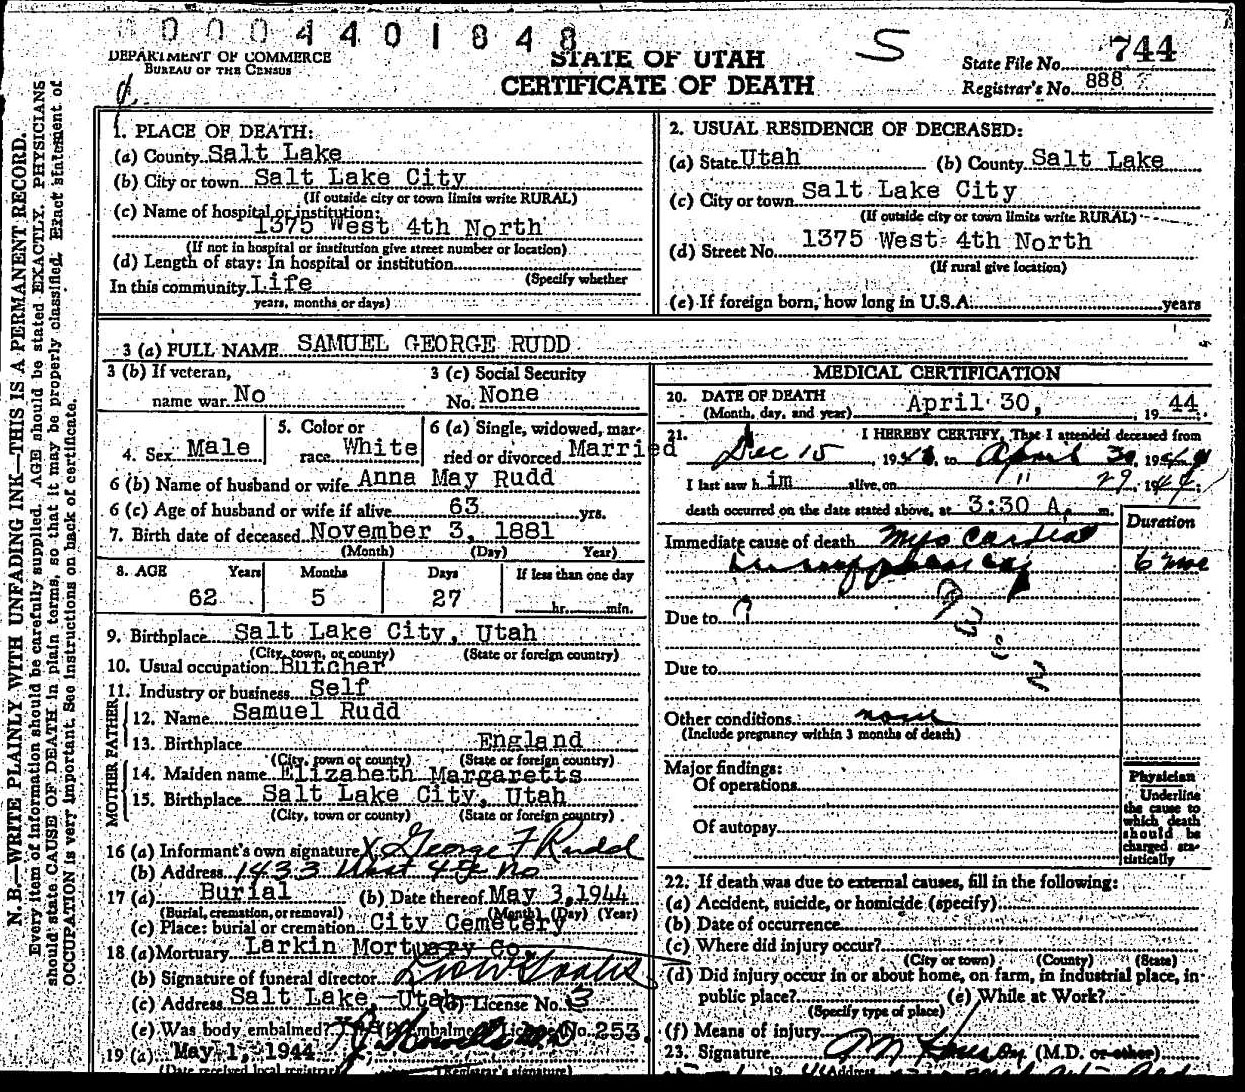 0004401848
DEPARTMENT OF COMMERCE
BUREAU OF THE CENSUS
STATE OF UTAH
CERTIFICATE OF DEATH
S
State File No. 744
Registrar's No. 888
N. B.—WRITE PLAINLY WITH UNFADING INK—THIS IS A PERMANENT RECORD.
Every item of information should be carefully supplied. AGE should be stated EXACTLY. PHYSICIANS
should state CAUSE OF DEATH in plain terms, so that it may be properly classified. Exact statement of
OCCUPATION is very important. See instructions on back of certificate.
1. PLACE OF DEATH:
(a) County Salt Lake
(b) City or town Salt Lake City
(If outside city or town limits write RURAL)
(c) Name of hospital or institution:
1375 West 4th North
(If not in hospital or institution give street number or location)
(d) Length of stay: In hospital or institution
(Specify whether
In this community Life
years, months or days)
2. USUAL RESIDENCE OF DECEASED:
(a) State Utah (b) County Salt Lake
(c) City or town Salt Lake City
(If outside city or town limits write RURAL)
(d) Street No. 1375 West 4th North
(If rural give location)
(e) If foreign born, how long in U.S.A. years
3 (a) FULL NAME SAMUEL GEORGE RUDD
3 (b) If veteran,
name war No
3 (c) Social Security
No. None
4. Sex Male
5. Color or
race White
6 (a) Single, widowed, mar-
ried or divorced Married
6 (b) Name of husband or wife Anna May Rudd
6 (c) Age of husband or wife if alive 63 yrs.
7. Birth date of deceased November 3, 1881
(Month) (Day) Year)
8. AGE Years Months Days If less than one day
62 5 27 hr. min.
9. Birthplace Salt Lake City, Utah
(City, town, or county) (State or foreign country)
10. Usual occupation Butcher
11. Industry or business Self
FATHER
12. Name Samuel Rudd
13. Birthplace England
(City, town or county) (State or foreign country)
MOTHER
14. Maiden name Elizabeth Margaretts
15. Birthplace Salt Lake City, Utah
(City, town or county) (State or foreign country)
16 (a) Informant's own signature X George F Rudd
(b) Address 1433 West 4th No
17 (a) Burial (b) Date thereof May 3, 1944
(Burial, cremation, or removal) (Month) (Day) (Year)
(c) Place: burial or cremation City Cemetery
18 (a) Mortuary Larkin Mortuary Co.
(b) Signature of funeral director
(c) Address Salt Lake, Utah (d) License No. 3
(e) Was body embalmed? Yes (f) Embalmer License No. 253
19 (a) May 1, 1944
(Date received local registrar) (Registrar's signature)
MEDICAL CERTIFICATION
20. DATE OF DEATH
(Month, day, and year) April 30, 1944
21. I HEREBY CERTIFY, That I attended deceased from
Dec 15, 1943, to April 30, 1944
I last saw him alive on " 29, 1944
death occurred on the date stated above, at 3:30 A. m.
Duration
Immediate cause of death Myo Cardial
insufficiency 6 mos
Due to ?
93
Due to
Other conditions none
(Include pregnancy within 3 months of death)
Major findings:
Of operations
Of autopsy
Physician
Underline
the cause to
which death
should be
charged sta-
tistically
22. If death was due to external causes, fill in the following:
(a) Accident, suicide, or homicide (specify)
(b) Date of occurrence
(c) Where did injury occur?
(City or town) (County) (State)
(d) Did injury occur in or about home, on farm, in industrial place, in
public place? (e) While at Work?
(Specify type of place)
(f) Means of injury
23. Signature (M.D. or other)